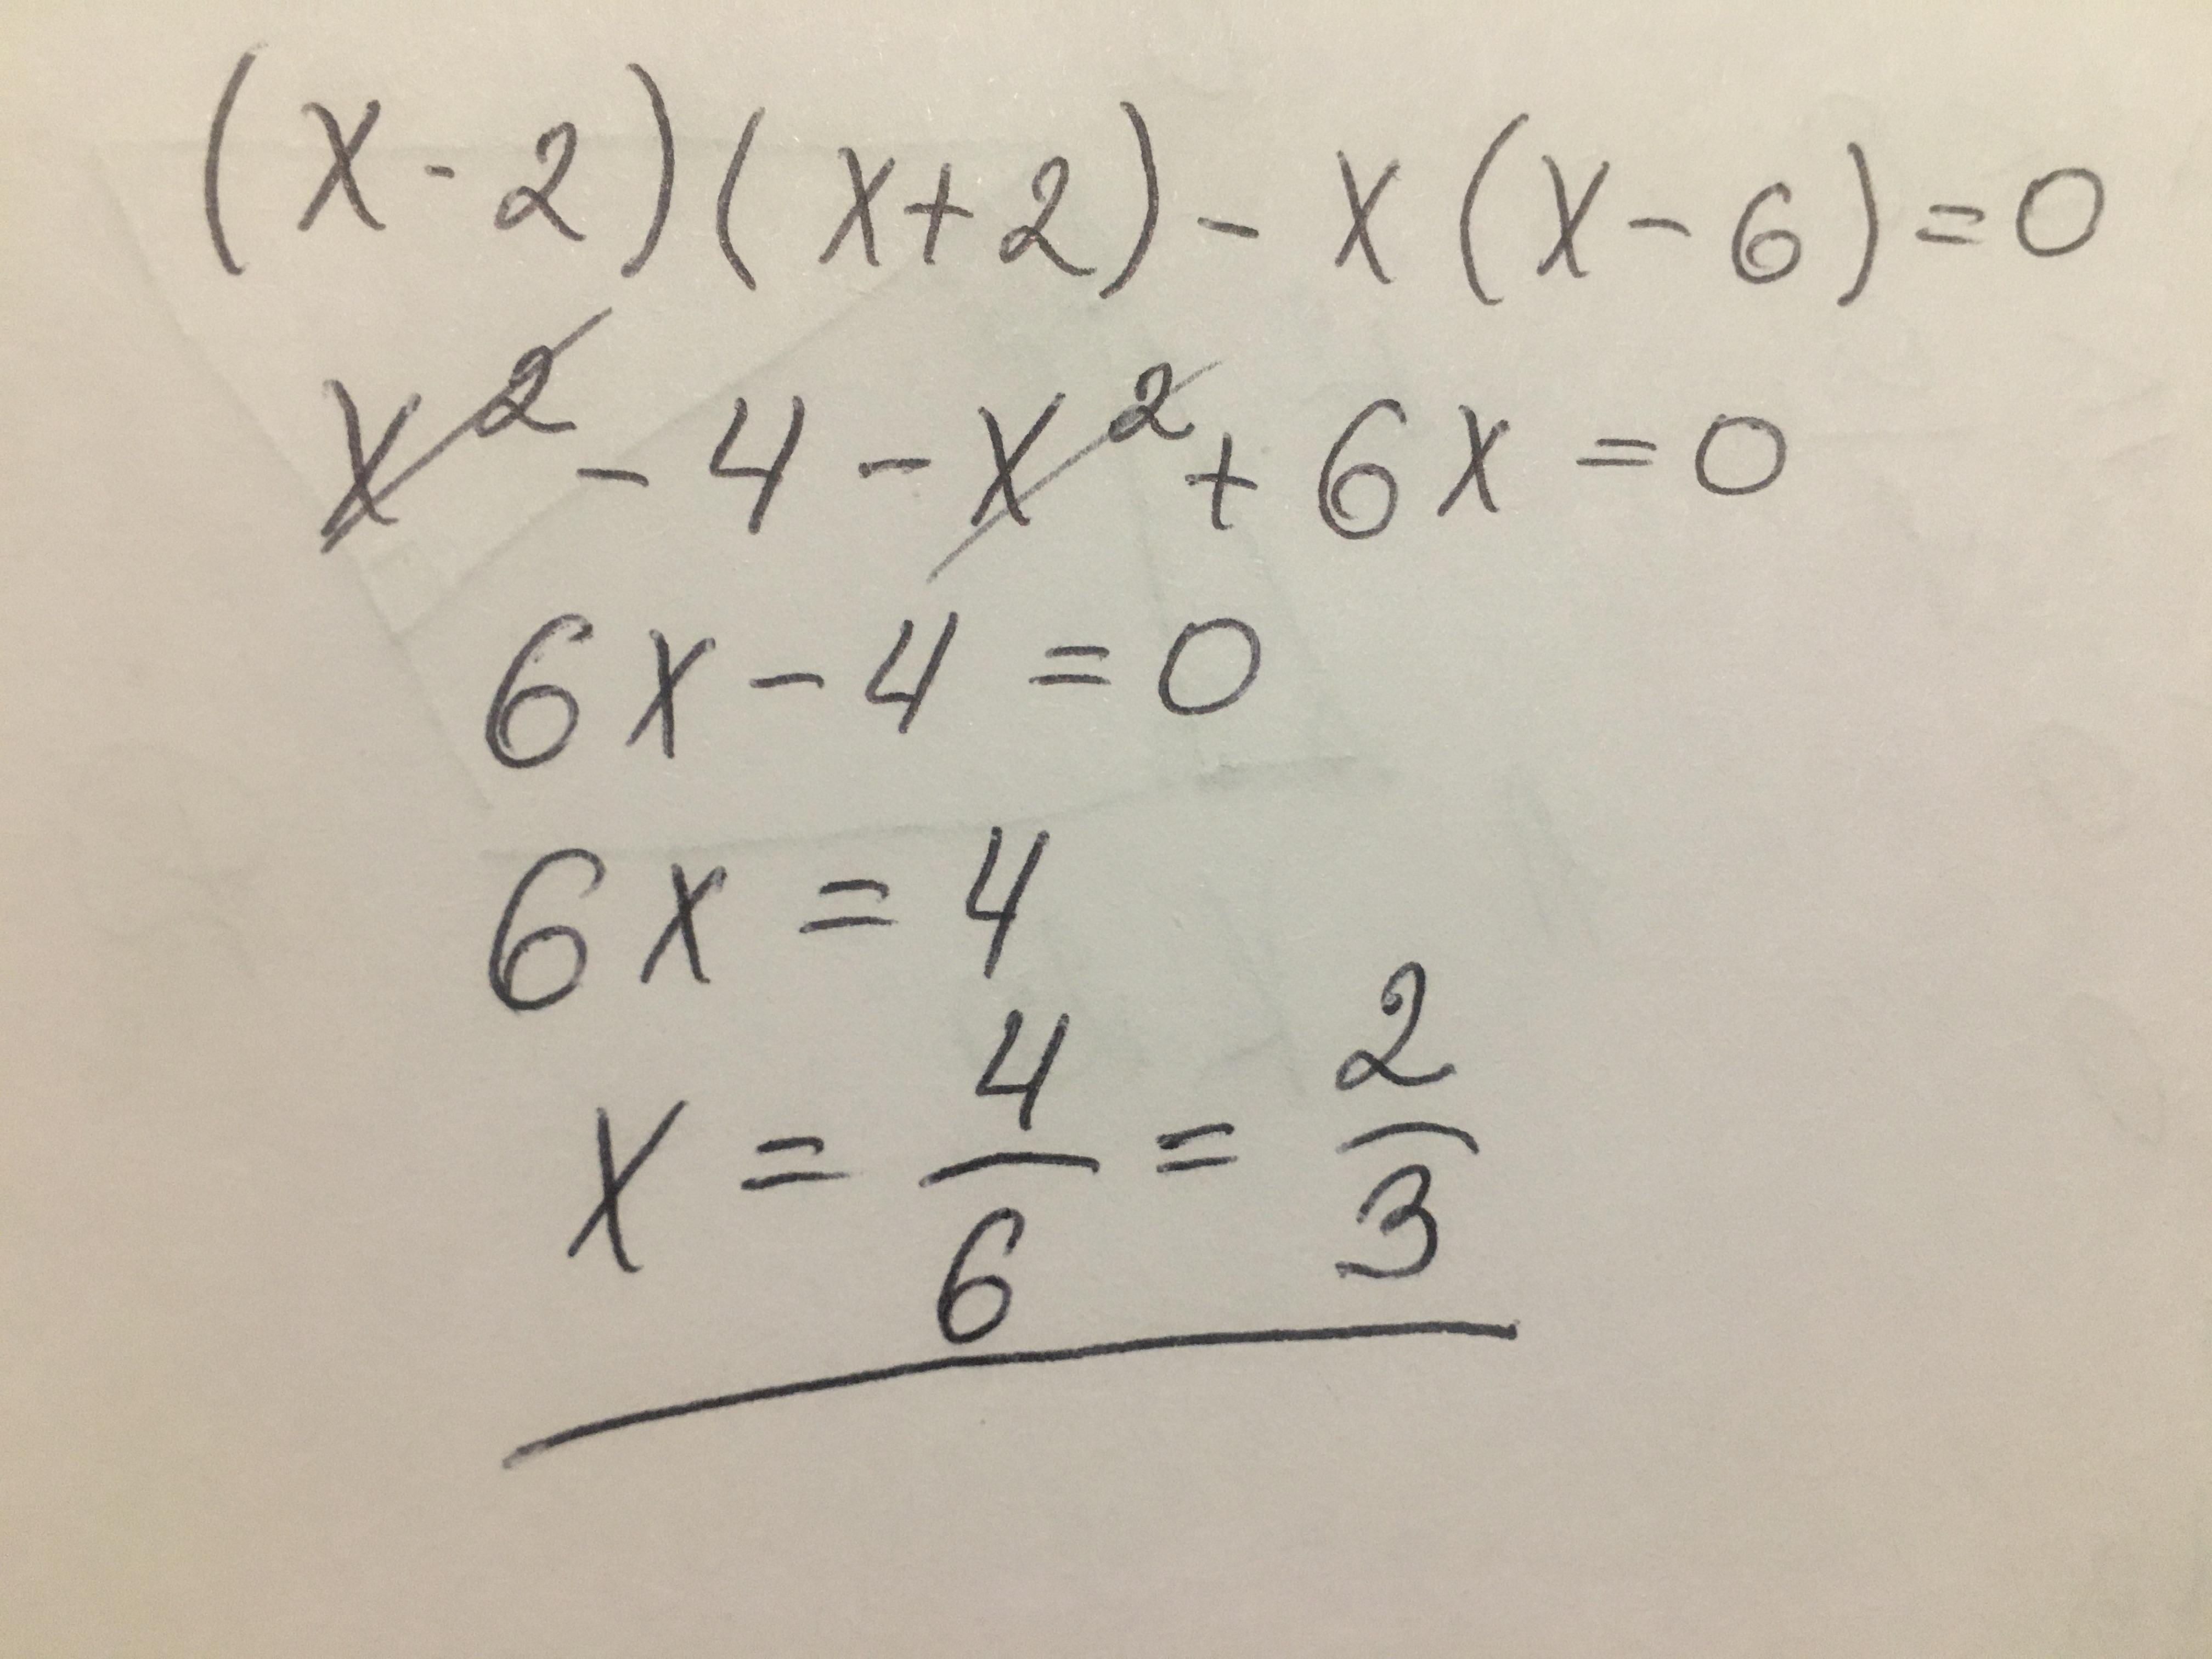 (x-2)(x+2)-x(x-6)=0
x²-4-x²+6x=0
6x-4=0
6x=4
x=4/6=2/3